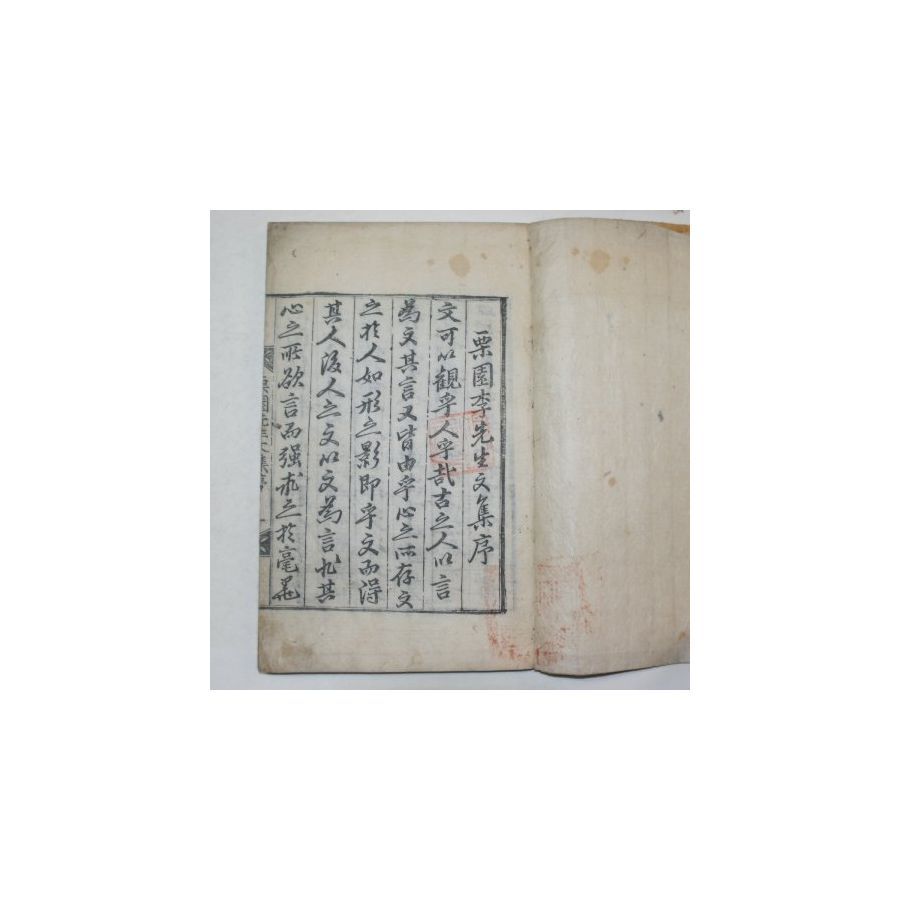 栗園李先生文集序
文可以觀乎人乎哉古之人以言
為文其言又皆由乎心之所存文
之於人如形之影即乎文而得
其人後人之文以文為言非其
心之所欲言而強求之於毫